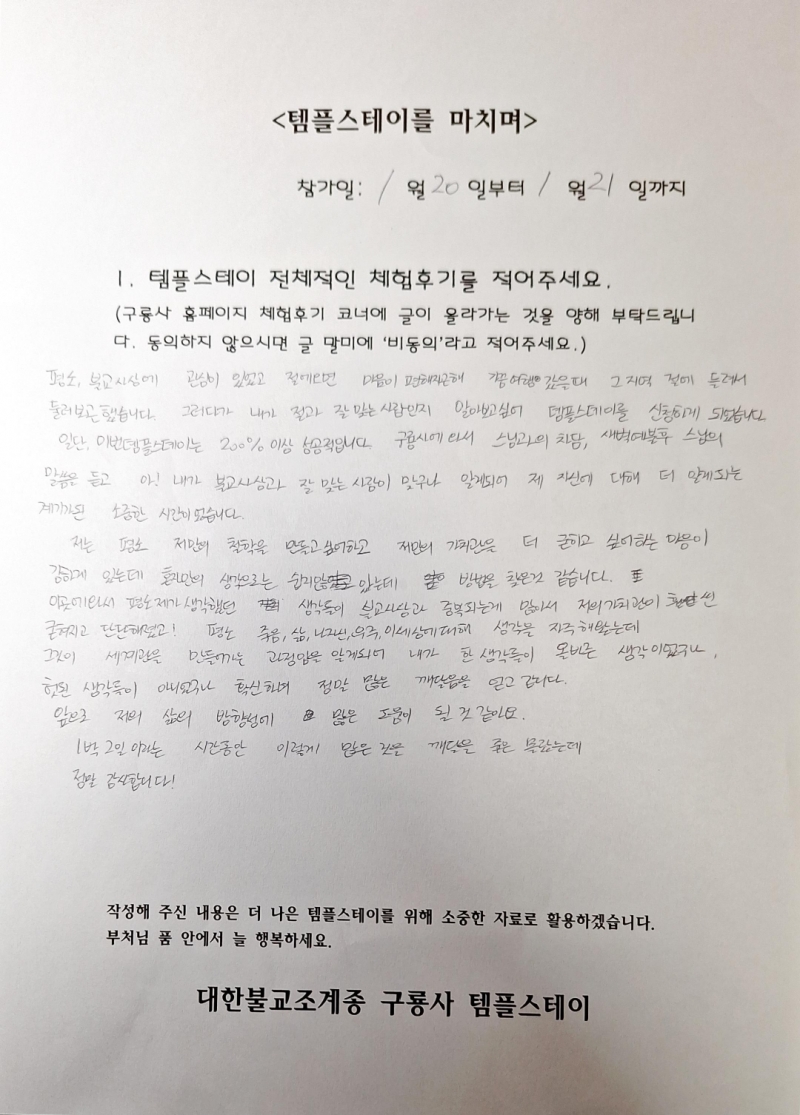 <템플스테이를 마치며>
참가일: 1 월 20 일부터 1 월 21 일까지
1. 템플스테이 전체적인 체험후기를 적어주세요.
(구룡사 홈페이지 체험후기 코너에 글이 올라가는 것을 양해 부탁드립니
다. 동의하지 않으시면 글 말미에 '비동의'라고 적어주세요.)
평소, 불교사상에 관심이 있었고 절에오면 마음이 편해지곤해 가끔여행 갔을때 그 지역 절에 들려서
둘러보곤했습니다. 그러다가 내가 절과 잘 맞는 사람인지 알아보고싶어 템플스테이를 신청하게 되었습니다.
일단, 이번템플스테이는 200% 이상 성공적입니다. 구룡사에 와서 스님과의 차담, 새벽예불후 스님의
말씀을 듣고 아! 내가 불교사상과 잘 맞는 사람이 맞구나 알게되어 제 자신에 대해 더 알게되는
계기가된 소중한 시간이었습니다.
저는 평소 저만의 철학을 만들고싶어하고 저만의 가치관을 더 굳히고 싶어하는 마음이
강하게 있는데 혼자만의 생각으로는 쉽지않 있는데 방법을 찾은것 같습니다.
이곳에와서 평소제가생각했던 생각들이 불교사상과 중복되는게 많아서 저의가치관이 훨씬
굳혀지고 단단해졌고! 평소 죽음, 삶, 나자신, 우주, 이세상에대해 생각을 자주해왔는데
그것이 세계관을 만들어가는 과정임을 알게되어 내가 한 생각들이 올바른 생각이었구나,
헛된 생각들이 아니었구나 확신하며 정말 많은 깨달음을 얻고 갑니다.
앞으로 저의 삶의 방향성에 많은 도움이 될 것 같아요.
1박 2일 이라는 시간동안 이렇게 많은 것을 깨달을 줄은 몰랐는데
정말 감사합니다!
작성해 주신 내용은 더 나은 템플스테이를 위해 소중한 자료로 활용하겠습니다.
부처님 품 안에서 늘 행복하세요.
대한불교조계종 구룡사 템플스테이